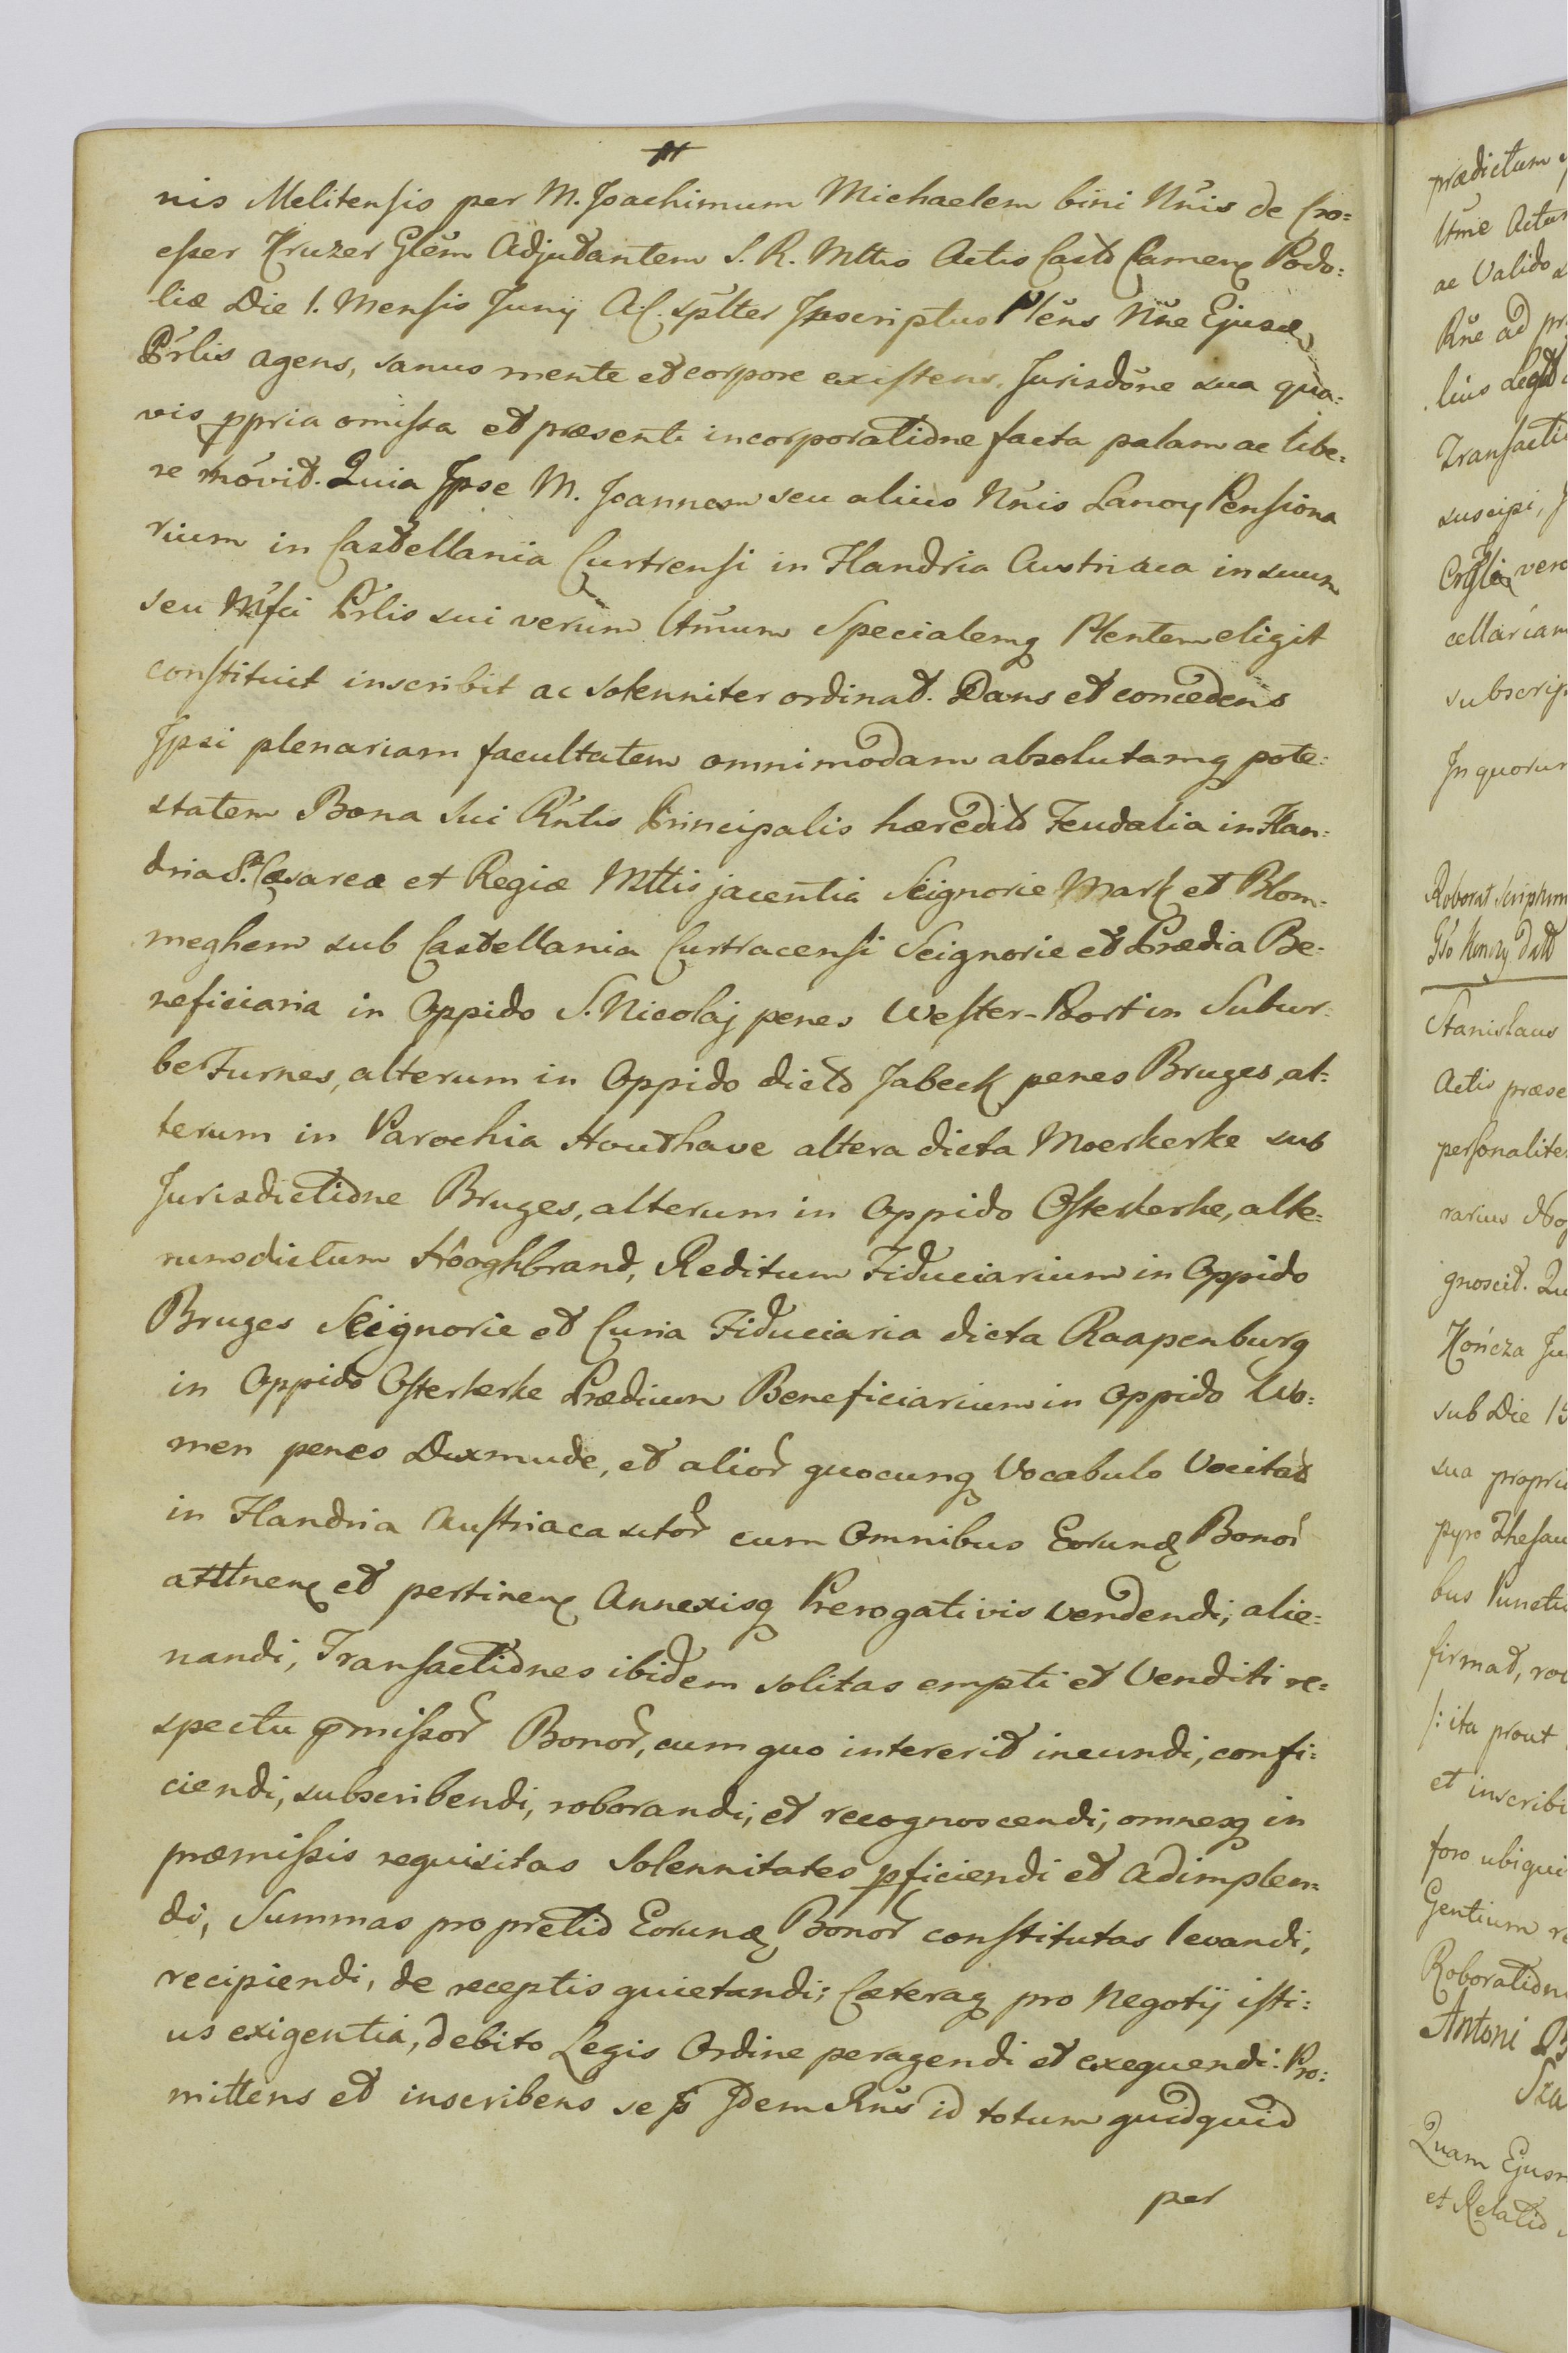 nis Melitensis per M. Joachimum Michaelem bini Nñis de Cro=
esser Kruzer Glẽm Adjudantem S. R. Mttis Actis Castr Camenz Podo=
liæ Die 1. Mensis Junij A. C. spltter Jnscriptus Plẽns Nñe Ejusd
Prlis agens, sanus mente et corpore existens, Jurisdõne sua qua=
vis ppria omissa et præsenti incorporatione facta palam ac libe=
re Quia Jpse M. Joannem seu alius Nñis Lanoy Pensiona
rium in Castellania Curtrensi in Flandria Austriaca in suum
seu Mfci Prlis sui verum Ltmum Specialemq Plentem eligit
constituit inscribit ac solenniter ordinat. Dans et concedens
Jpsi plenariam facultatem omnimodam absolutamq pote=
statem Bona Sui Rntis Principalis hæredit Feudalia in Flan=
dria S. Cæsareæ et Regiæ Mttis jacentia Seignorie Mark et Blom=
meghem sub Castellania Curtracensi Seignorie et Prædia Be=
neficiaria in Oppido S. Nicolaj penes Wester-Poort in Subur=
be Furnes, alterum in Oppido dicto Jabeck penes Bruges, al=
terum in Parochia Houthave altera dicta Moerkerke sub
Jurisdictione Bruges, alterum in Oppido Osterkerke, alte=
rum dictum Hôoghbrand, Reditum Fiduciarium in Oppido
Bruges Seignorie et Curia Fiduciaria dicta Raapenburg
in Oppido Osterkerke Prædium Beneficiarium in Oppido Wo=
men penes Dixmude, et alior quocunq Vocabulo Vocitat
in Flandria Austriaca sitor cum Omnibus Eorund Bonor
atttnen et pertinen Annexisq Prerogativis vendendi, alie=
nandi, Transactiones ibidem solitas empti et Venditi re=
spectu pmissor Bonor, cum quo intererit ineundi, confi=
ciendi, subscribendi, roborandi, et recognoscendi, omnesq in
præmissis requisitas Solennitates pficiendi et adimplen=
di, Summas pro pretio Eorund Bonor constitutas levandi,
recipiendi, de receptis quietandi; Cæteraq pro Negotij isti=
us exigentia, debito Legis Ordine peragendi et exequendi. Pro=
mittens et inscribens se Jdem Rñs id totum quidquid
per
prædictum
Ltme Actum
ac Valido
Rñe ad
suscipi,
vero
subscrip
Jn quorum
Roborat Scriptum
Stanislaus
Actis præse
personaliter
rarius
gnoscit. Qu
Kończa Ju
sub Die 15
sua propri
pyro Thesau
bus Puncti
firmat, ro
/: ita prout
et inscribi
foro ubiqui
Gentium re
Roboration
Antoni
Sta
Quam Ejusm
et Relatio